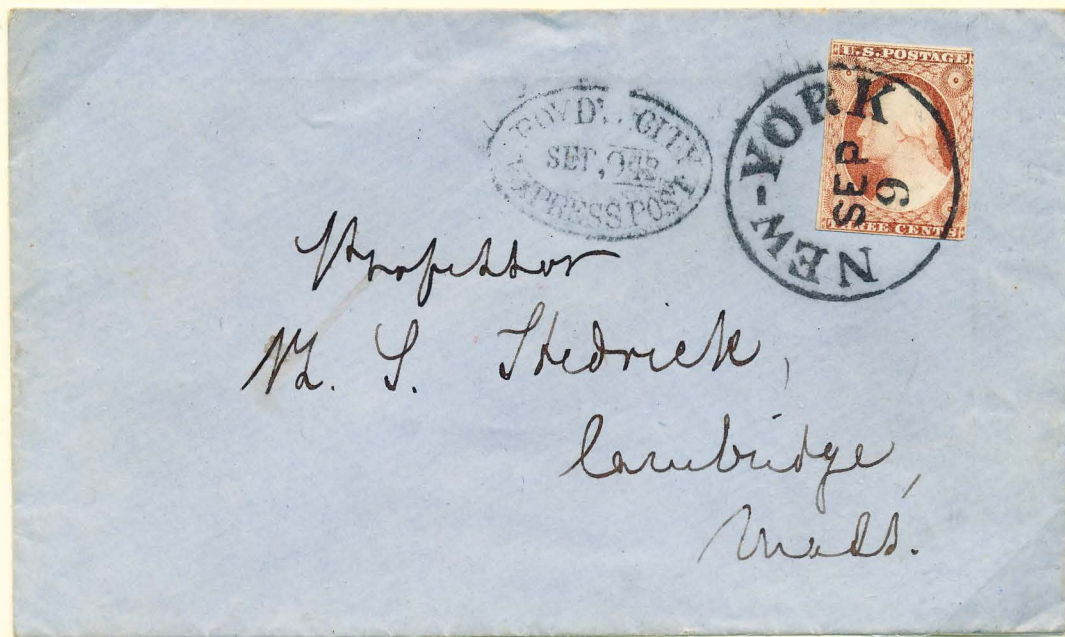 U.S. POSTAGE
THREE CENTS
NEW-YORK
SEP
9
BOYD'S CITY
EXPRESS POST
Professor
S. Hedrick,
Cambridge,
Mass.